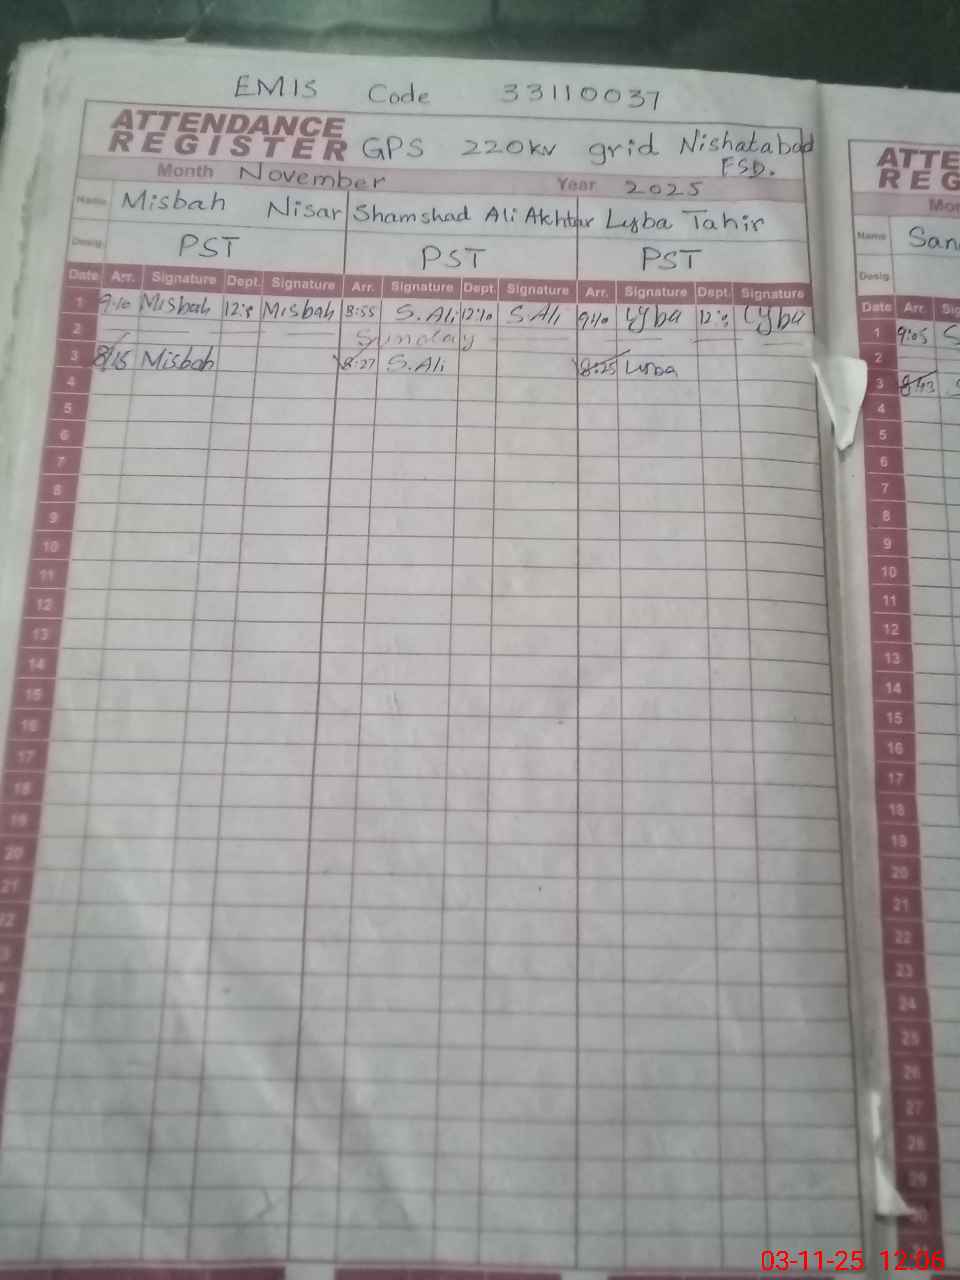 EMIS Code 33110037
ATTENDANCE REGISTER GPS 220kv grid Nishatabad FSD.
Month November Year 2025
Name Misbah Nisar Shamshad Ali Akhtar Lyba Tahir
Desig. PST PST PST
Date Arr. Signature Dept. Signature Arr. Signature Dept. Signature Arr. Signature Dept. Signature
1 9:10 Misbah Misbah 8:55 S.Ali 12:10 S.Ali 9:10 Lyba Lyba
2 Sunday
3 8:15 Misbah 8:27 S.Ali 8:25 Lyba
4
5
6
7
8
9
10
11
12
13
14
15
16
17
18
19
20
21
22
ATTE
REG
Mon
Name San
Desig
Date Arr. Sig
1 9:05 S
2
3 8:43 S
4
5
6
7
8
9
10
11
12
13
14
15
16
17
18
19
20
21
22
23
24
25
26
27
28
29
30
03-11-25 12:06